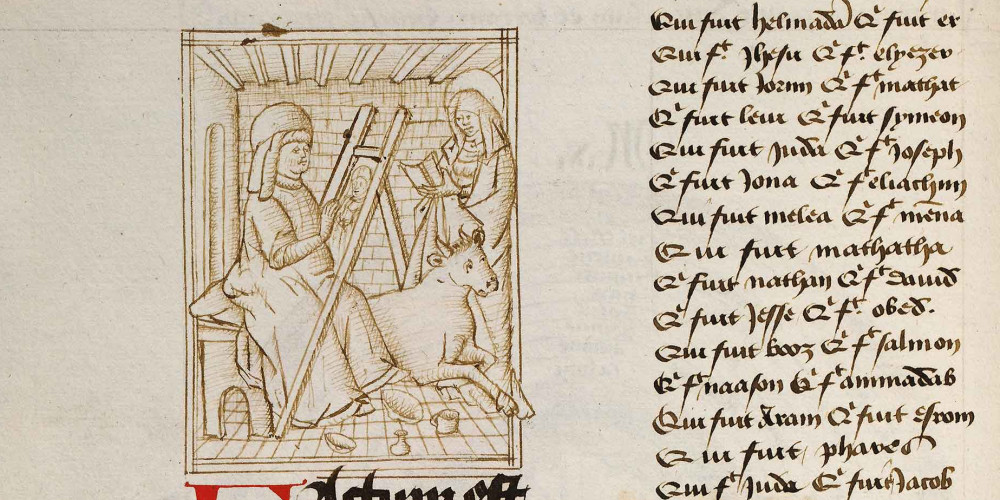 Factum est
Qui fuit helmadā Q̄ fuit er
Qui fᵗ Jhesu Q̄ fᵗ elyezer
Qui fuit Jorim Q̄ fᵗ mathat
Q̄ fuit leui Q̄ fuit symeon
Qui fuit Juda Q̄ fᵗ Joseph
Q̄ fuit Jona Q̄ fᵗ eliachim
Qui fuit melea Q̄ fᵗ mēna
Qui fuit mathatha
Q̄ fuit nathan Q̄ fᵗ dauid
Q̄ fuit Jesse Q̄ fᵗ obed.
Qui fuit booz Q̄ fᵗ salmon
Q̄ fᵗ naason Q̄ fᵗ ammadab
Qui fuit Aram Q̄ fuit esrom
Qui fuit phares
Qui fᵗ Juda Q̄ fuit Jacob